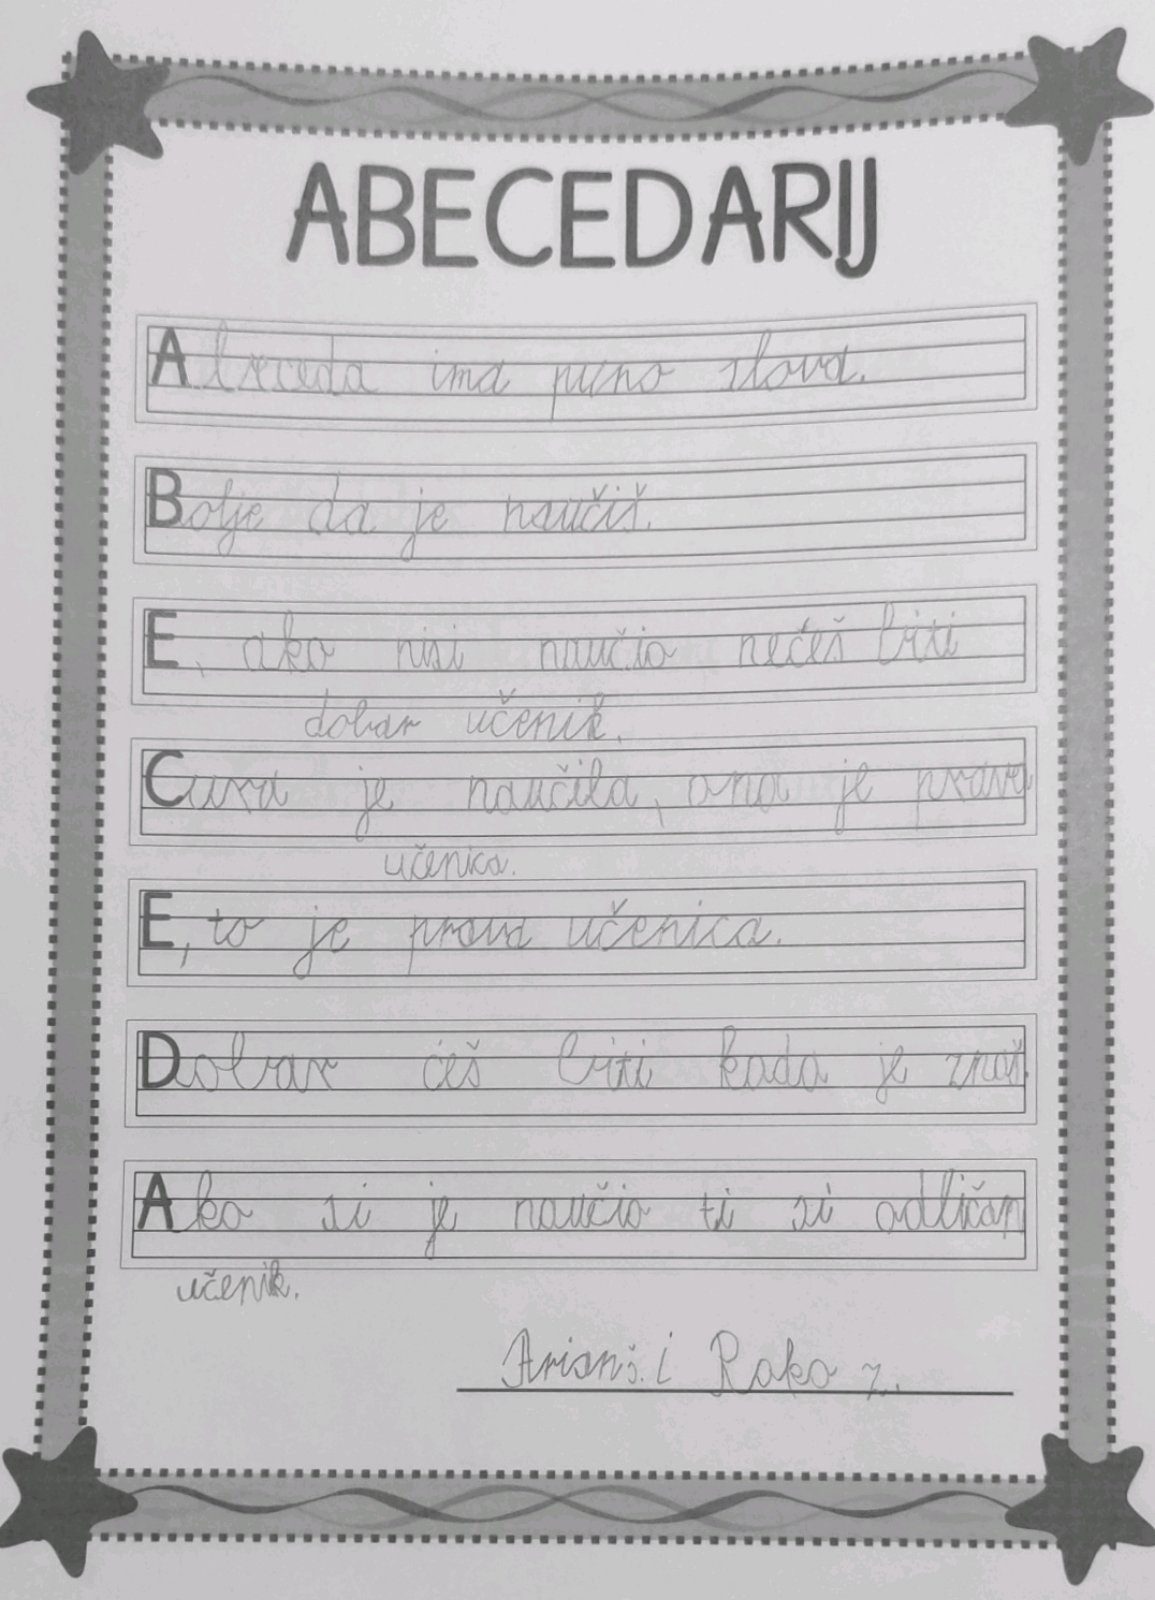 ABECEDARIJ
Abeceda ima puno slova.
Bolje da je naučiš.
E, ako nisi naučio nećeš biti
dobar učenik.
Cura je naučila, ona je prava
učenica.
E, to je prava učenica.
Dobar ćeš biti kada je znaš.
Ako si je naučio ti si odličan
učenik.
i Roko z.